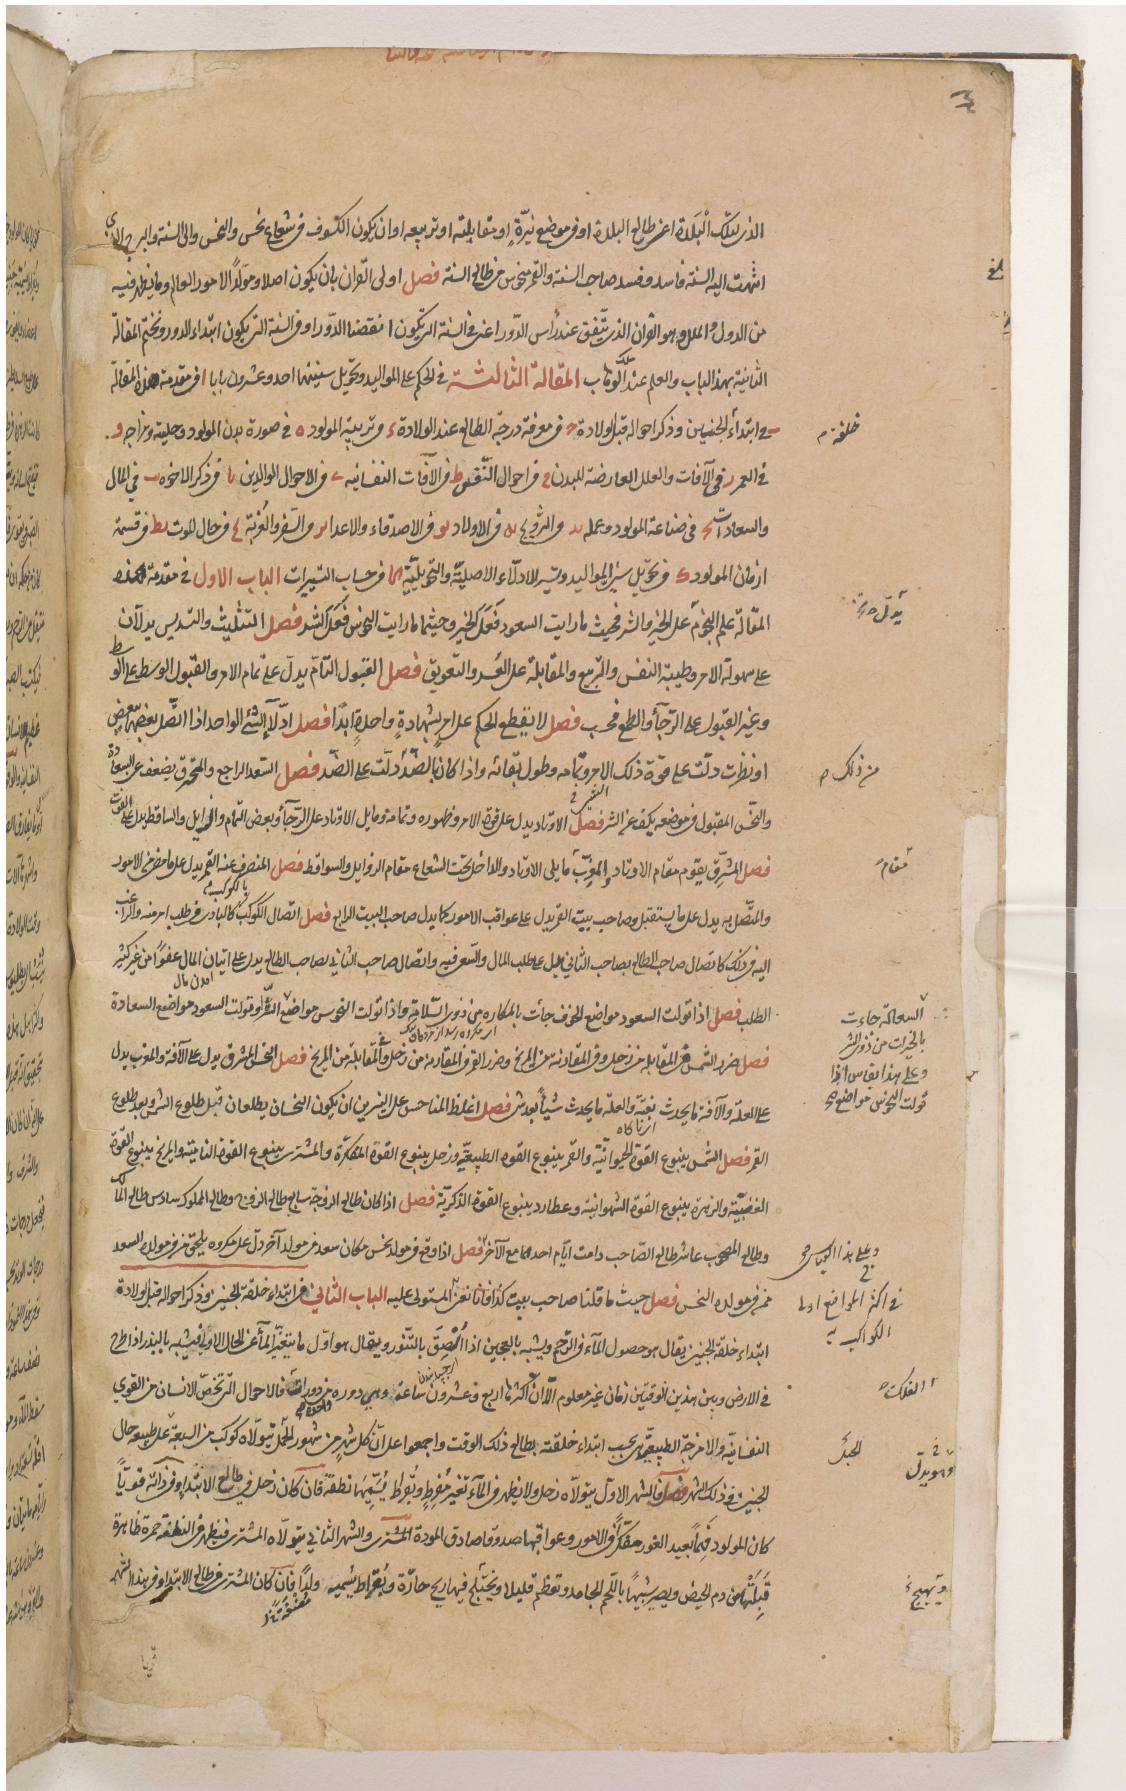 الذى لتلك البلدة اعنى طالع البلدة او فى موضع نيّره او مقابلته او تربيعه او ان يكون الكسوف فى شعاع نحس والنحس والى السنة والبرج الذى
انتهت اليه السنة فاسد وفسد صاحب السنة والقمر منحوس من طالع السنة فصل اولى القران بان يكون اصلا ومولّدًا لامور العالم وما يظهر فيه
من الدول والملل وهو القران الذى يتّفق عند رأس الدّور اعنى فى السنة التى يكون انقضا الدّور او فى السنة التى يكون ابتداء الدور ونختم المقالة
الثانية بهذا الباب والعلم عند الملك الوهاب المقالة الثالثة فى الحكم على المواليد وتحويل سنينها احد وعشرون بابا ا فى مقدمة هذه المقالة
ب فى ابتدأ الجنين وذكر احواله قبل الولادة ج فى معرفة درجة الطالع عند الولادة د وتربية المولود ه فى صورة بدن المولود وحليته ومزاجه و
فى العمر ز فى الآفات والعلل العارضة للبدن ح فى احوال النّفس ط فى الآفات النفسانيه ى فى الاحوال الوالدين يا فى ذكر الاخوه يب فى المال
والسعادات يج فى صناعة المولود وعمله يد والتزويج يه فى الاولاد يو فى الاصدقاء والاعدا يز والسّفر والغربة يح فى حال الموت يط فى قسمة
ازمان المولود ك فى تحويل سنى المواليد وتسيير الادلّاء الاصليّة والتحويليّة كا فى حساب التسييرات الباب الاول فى مقدمة هذه
المقالة علم النجوم على الخير والشر فحيث ما رايت السعود فعلك الخير وحيثما رايت النحوس فعلك الشر فصل التثليث والتسديس يدلّان
على سهولة الامر وطيبة النفس والتربيع والمقابلة على العُسر والتعويق فصل القبول التامّ يدلّ على تمام الامر والقبول الوسط على الوسط
وغير القبول على الرّجآء والطمع فحسب فصل لا يقطع الحكم على امر بشهادةٍ واحدةٍ ابدًا فصل ادلّآء الشئ الواحد اذا اتّصل بعضها ببعضٍ
او نظرت دلّت على قوّة ذلك الامر وتمامه وطول بقائه واذا كان بالضّد دلّت على الضّد فصل السّعد الراجع والمحترق يضعف عن السعادة
والنحس المقبول فى موضعه يكفّ عن الشر فصل الاوتاد يدل على قوة الامر وظهوره وتمامه وما يلى الاوتاد على الرجآء وبعض التمام والزوايل والساقط يدل على الفوت
فصل المشرّق يقوم مقام الاوتاد والمغرّب ما يلى الاوتاد والداخل تحت الشعاع مقام الزوايل والسواقط فصل المنصرف عنه القمر يدل على ما مضى من الامور
والمتّصل به يدل على ما يستقبل وصاحب بيت القمر يدل على عواقب الامور كما يدل صاحب البيت الرابع فصل اتصال الكوكب بالكوكب كالبادى فى طلب امر منه والراغب
اليه فى ذلك كاتصال صاحب الطالع بصاحب الثانى يدل على طلب المال والسّعى فيه واتصال صاحب الثانى بصاحب الطالع يدل على اتيان المال عفوًا من غير كثير
الطلب فصل اذا تولت السعود مواضع الخوف جآت بالمكاره من ذوى السّلامة واذا تولت النحوس مواضع الشر او تولت السعود مواضع السعادة
فصل ضرر الشمس فى المقابلة من زحل وفى المقارنة من المريخ وضرر القمر فى المقارنة من زحل وفى المقابلة من المريخ فصل النحس المشرق يدل على الآفة والمغرب يدل
على العلّة والآفة ما يحدث بغتةً والعلة ما يحدث شيأ بعد شئ فصل اغلظ المناحس على النيرين ان يكون النحسان يطلعان قبل طلوع الشمس وبعد طلوع
القمر فصل الشمس ينبوع القوة الحيوانيّة والقمر ينبوع القوه الطبيعيّه وزحل ينبوع القوة الممسكة والمشترى ينبوع القوة النامية والمريخ ينبوع القوة
الغضبيّة والزهرة ينبوع القوة الشهوانية وعطارد ينبوع القوة الذكريّة فصل اذا كان طالع الزوجة سابع طالع الزوج وطالع المملوك سادس طالع المالك
وطالع المصحوب عاشر طالع الصّاحب دامت ايّام احدهما مع الآخر فصل اذا وقع فى مولد نحس مكان سعد فى مولد آخر دلّ على مكروه يلحق من فى مولده السعد
ممن فى مولده النحس فصل حيث ما قلنا صاحب بيت كذا فانا نعنى المستولى عليه الباب الثانى فى ابتداء خلقة الجنين وذكر احواله قبل الولادة
ابتداء خلقة الجنين يقال هو حصول المآء فى الرّحم ويشبه بالعجين اذا اُلصِقَ بالتنّور ويقال هو اوّل ما يتغيّر المآء عن الحال الاولى فيشبه بالبذر اذا طرح
فى الارض وبين هذين الوقتين زمان غير معلوم الّا انّ اكثرها اربع وعشرون ساعة وهى دورة من دورات فالاحوال الّتى تخصّ الانسان من القوى
النفسانيّة والامزجة الطبيعيّة هى بحسب ابتداء خلقته بطالع ذلك الوقت واجمعوا على انّ كل شهرٍ من شهور الحمل يتولّاه كوكب من السبعة على طبيعه حال
الجنين فى ذلك الشهر فصل فالشهر الاوّل يتولّاه زحل ولا يظهر فى المآء تغير مُفرِطٍ وبُقراط يُسَمّيها نطفةً فان كان زحل فى طالع الابتداء وفى ذاته قويًّا
كان المولود فهمًا بعيد الغور متفكرًا فى الامور وعواقبها صدوقا صادق المودة والشهر الثانى يتولّاه المشترى فيظهر فى النطفة حمرة ظاهرة
قبلتها من دم الحيض ويصير شبيهًا باللّحم الجامد وتعظم قليلا ويختلج فيها ريح حارّة وبُقراط يسميه ولدًا فان كان المشترى فى طالع الابتداء وفى هذا الشهر
خلقة م
يدلّ
من ذلك م
مقام
السعادة جاءت
بالخيرات من ذوى الشر
وعلى هذا يقاس اذا
تولت النحوس مواضع
وعلى هذا القياس
فى اكثر المواضع اولا
الكواكب
الفلك
الحبل
وهو يدل
وتهيج